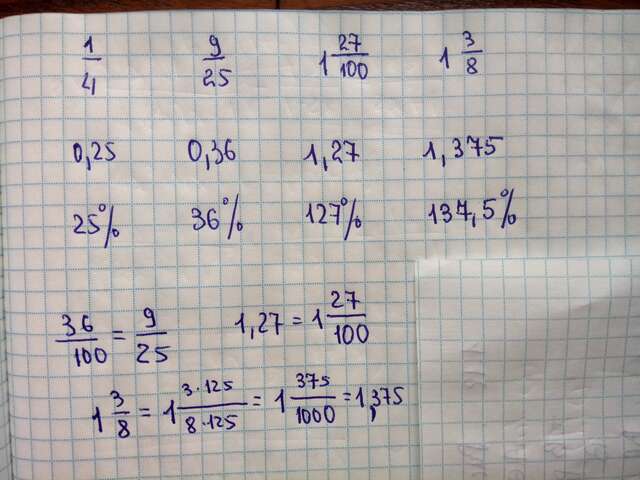 1/4 9/25 1 27/100 1 3/8
0,25 0,36 1,27 1,375
25% 36% 127% 134,5%
36/100 = 9/25 1,27 = 1 27/100
1 3/8 = 1 3·125/8·125 = 1 375/1000 = 1,375